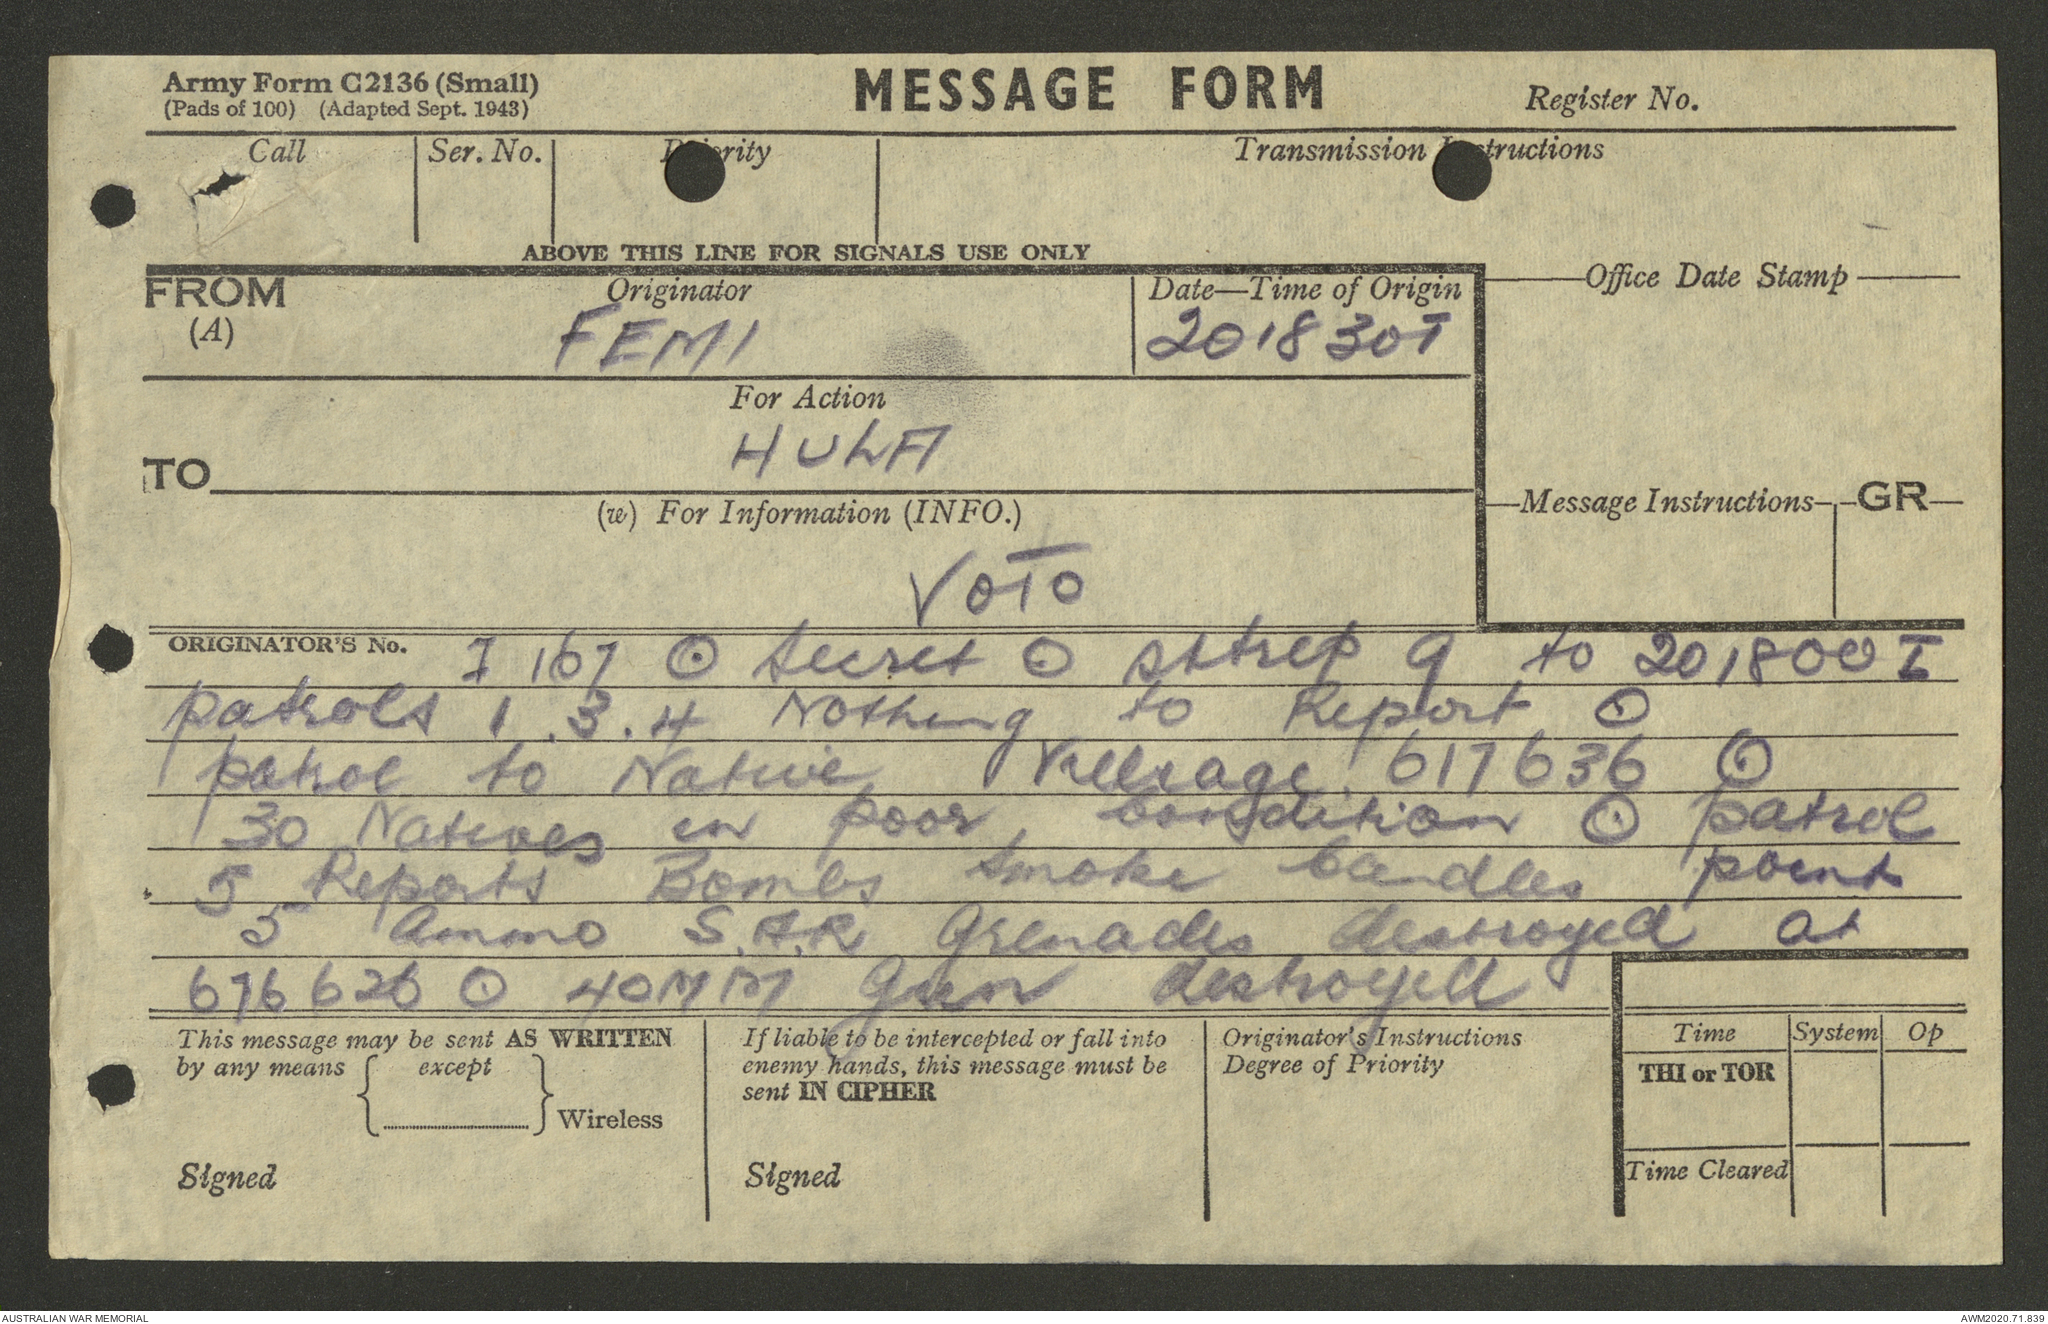 Army Form C2136 (Small)
(Pads of 100) (Adapted Sept. 1943)
MESSAGE FORM
Register No.
Call
Ser. No.
Priority
Transmission Instructions
ABOVE THIS LINE FOR SIGNALS USE ONLY
FROM
(A)
Originator
FEMI
Date—Time of Origin
201830I
Office Date Stamp
For Action
HULA
TO
(w) For Information (INFO.)
VOTO
Message Instructions
GR
ORIGINATOR'S No.
I 167 ⊙ Secret ⊙ sitrep 9 to 201800I
patrols 1.3.4 Nothing to Report ⊙
patrol to Native Village 617636 ⊙
30 Natives in poor condition ⊙ patrol
5 Reports Bombs Smoke Candles point
5 Ammo S.A.R Grenades destroyed at
676626 ⊙ 40MM Gun destroyed
This message may be sent AS WRITTEN
by any means except
Wireless
Signed
If liable to be intercepted or fall into
enemy hands, this message must be
sent IN CIPHER
Signed
Originator's Instructions
Degree of Priority
Time
System
Op
THI or TOR
Time Cleared
AUSTRALIAN WAR MEMORIAL
AWM2020.71.839